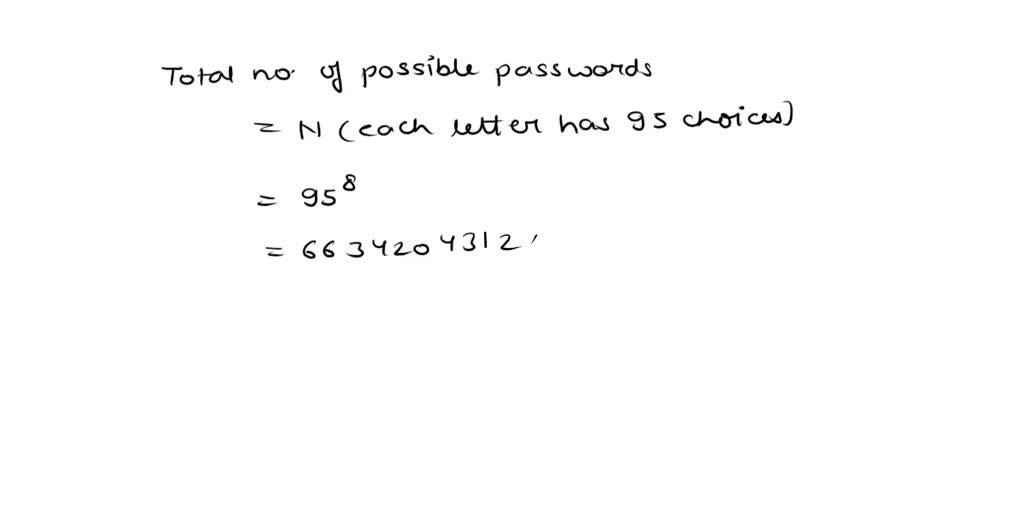 Total no. of possible passwords
= N (each letter has 95 choices)
= 95⁸
= 6634204312